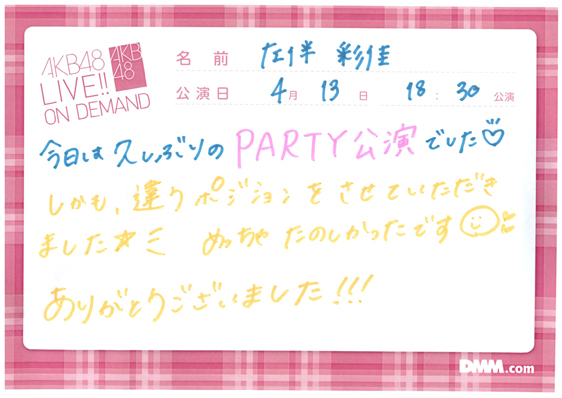 AKB48
LIVE!!
ON DEMAND
AKB
48
名前 左伴 彩佳
公演日 4月 13日 18:30公演
今日は久しぶりのPARTY公演でした♡
しかも、違うポジションをさせていただき
ました☆ミ めっちゃたのしかったです
ありがとうございました!!!
DMM.com